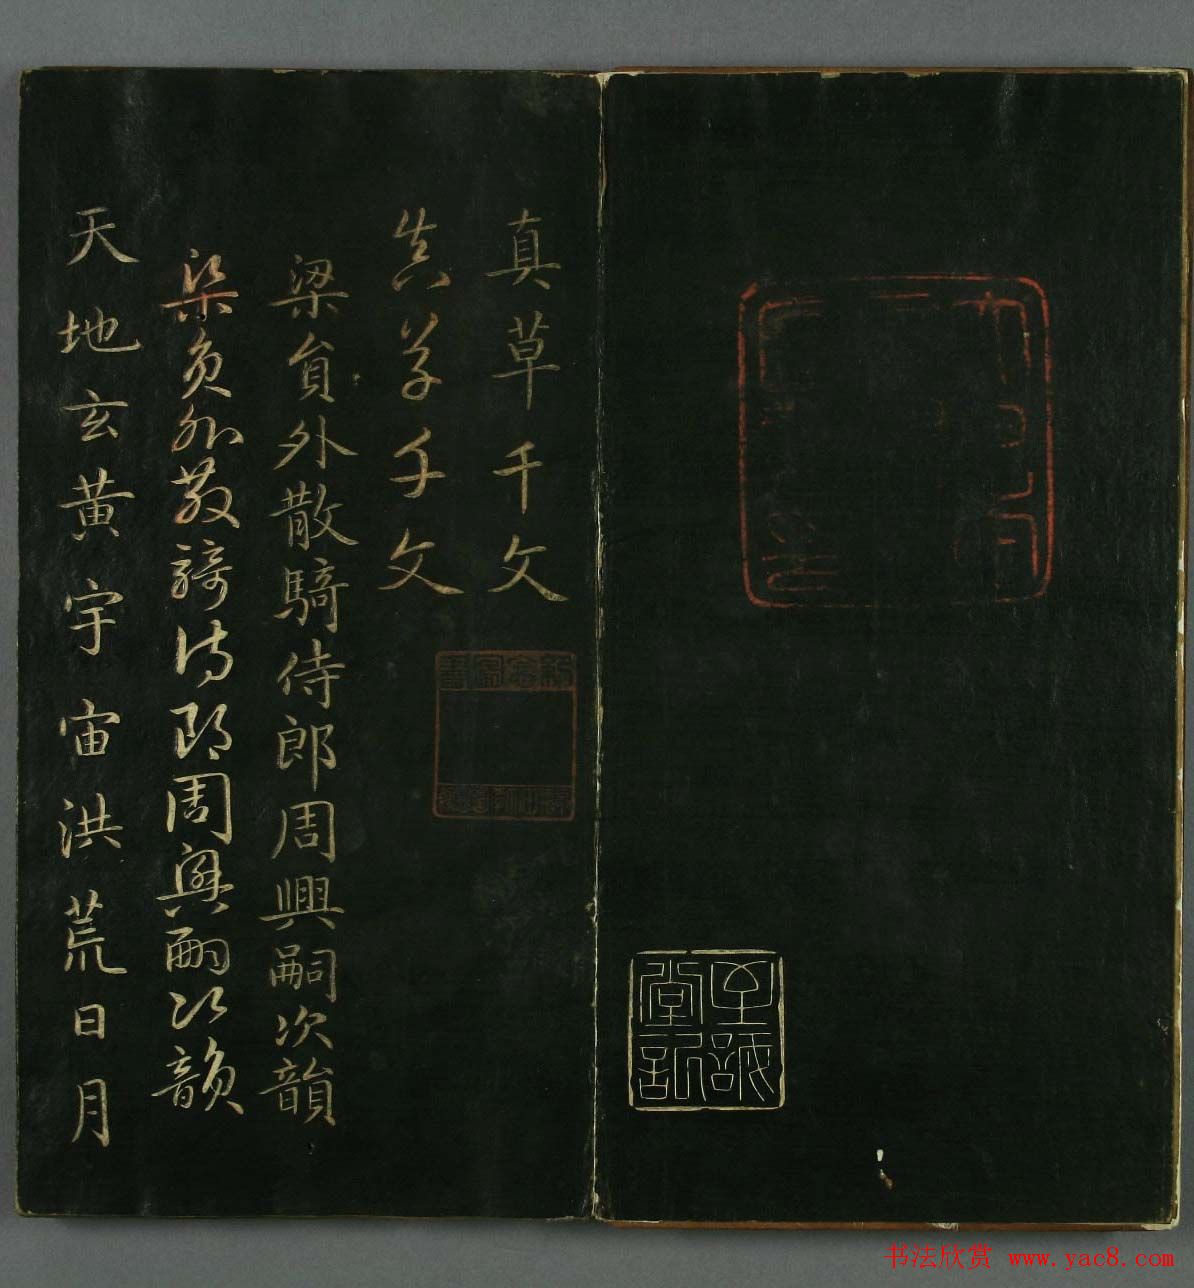 真草千文
真草千文
梁員外散騎侍郎周興嗣次韻
梁員外散騎侍郎周興嗣次韻
天地玄黃宇宙洪荒日月
至誠堂記
书法欣赏 www.yac8.com